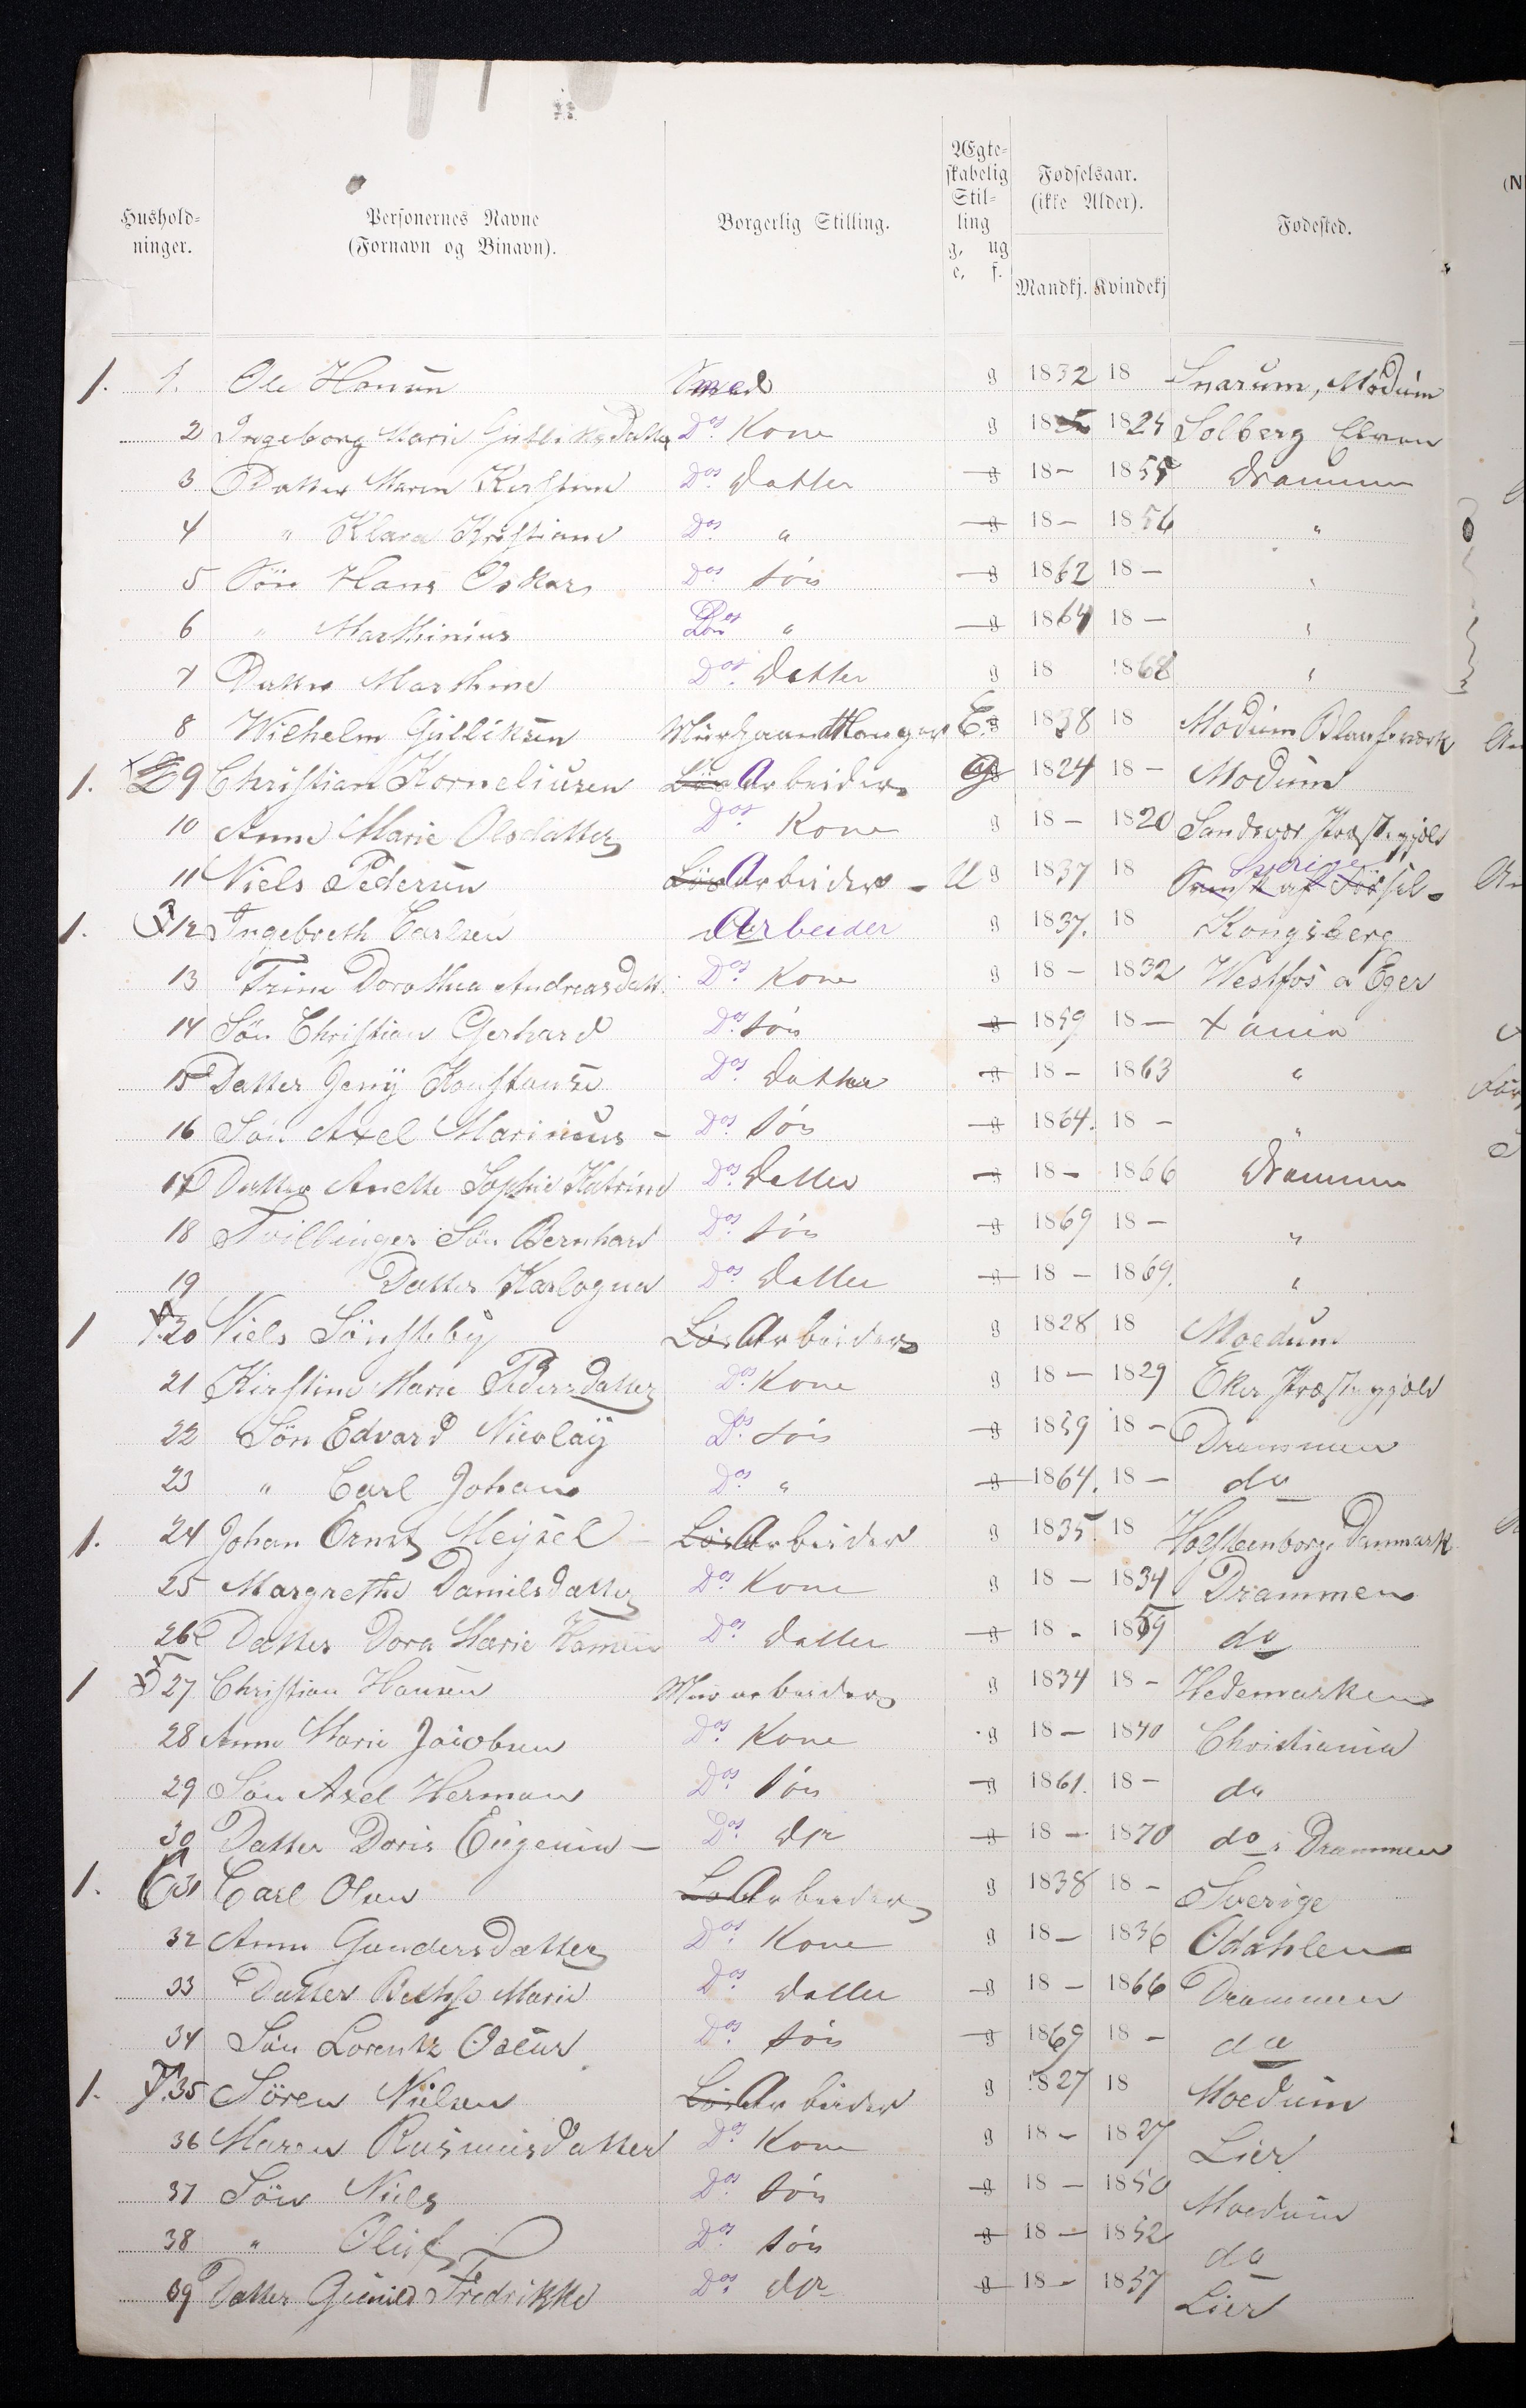 Hushold-ninger. Personernes Navne (Fornavn og Binavn). Borgerlig Stilling. Ægte-skabelig Stil-ling g, ug e, f. Fødselsaar. (ikke Alder). Mandkj. Kvindekj Fødested.
1. 1. Ole Hansen Smed g 1832 18 Snarum, Modum
2 Ingeborg Marie Gulliksdatter Dos Kone g 18 1824 Solberg Elven
3 Datter Maren Kirstine Dos Datter g 18- 1855 Drammen
4 " Klara Kristiane Dos " g 18- 1856 "
5 Søn Hans Oskar Dos Søn g 1862 18- "
6 " Marthinius Dos " g 1864 18- "
7 Datter Marthine Dos Datter g 18 1868 "
8 Wilhelm Gulliksen E. g 1838 18 Modum Blaafværk
1. 9 Christian Korneliusen Løs Arbeider g 1824 18- Modum
10 Anne Marie Olsdatter Dos Kone g 18- 1820 Sandsvær Præstegjæld
11 Niels Pedersen Løs Arbeider - U g 1837 18 Svensk af Fødsel Sverige
1. 3 12 Ingebreth Carlsen Arbeider g 1837. 18 Kongsberg
13 Trine Dorothea Andreasdatt. Dos Kone g 18- 1832 Westfos a Eger
14 Søn Christian Gerhard Dos Søn g 1859 18- Xania
15 Datter Geny Konstanse Dos Datter g 18- 1863 "
16 Søn Axel Marinius - Dos Søn g 1864. 18- "
17 Datter Anette Sophie Katrine Dos Datter g 18- 1866 Drammen
18 Tvillinger Søn Bernhard Dos Søn g 1869 18- "
19 Datter Karlogna Dos Datter g 18- 1869. "
1 20 Niels Sønsteby Løs Arbeider g 1828 18 Moedum
21 Kirstine Marie Pedersdatter Dos Kone g 18- 1829 Eker Præstegjæld
22 Søn Edvard Nicolay Dos Søn g 1859 18- Drammen
23 " Carl Johan Dos " g 1864. 18- do
1. 24 Johan Ernst Meysel - Løs Arbeider g 1835. 18 Holstenborg Danmark
25 Margrethe Danielsdatter Dos Kone g 18- 1834 Drammen
26 Datter Dora Marie Dos Datter g 18- 1859 do
1 5 27 Christian Hansen Murarbeider g 1834 18- Hedemarken
28 Anne Marie Jacobsen Dos Kone g 18- 1840 Christiania
29 Søn Axel Herman Dos Søn g 1861. 18- do
30 Datter Doris Eugenia - Dos Dtr g 18- 1870 do Drammen
1. 6 31 Carl Olsen Løs Arbeider g 1838 18- Sverige
32 Anne Gundersdatter Dos Kone g 18- 1836 Odahlen
33 Datter Marie Dos Datter g 18- 1866 Drammen
34 Søn Lorentz Oscar Dos Søn g 1869 18- do
1. 7. 35 Søren Nielsen Løs Arbeider g 1827 18 Moedum
36 Maren Rasmusdatter Dos Kone g 18- 1827 Lier
37 Søn Niels Dos Søn g 18- 1850 Moedum
38 " Oluf Dos Søn g 18- 1852 do
39 Datter Gunild Fredrikke Dos Dtr g 18- 1857 Lier